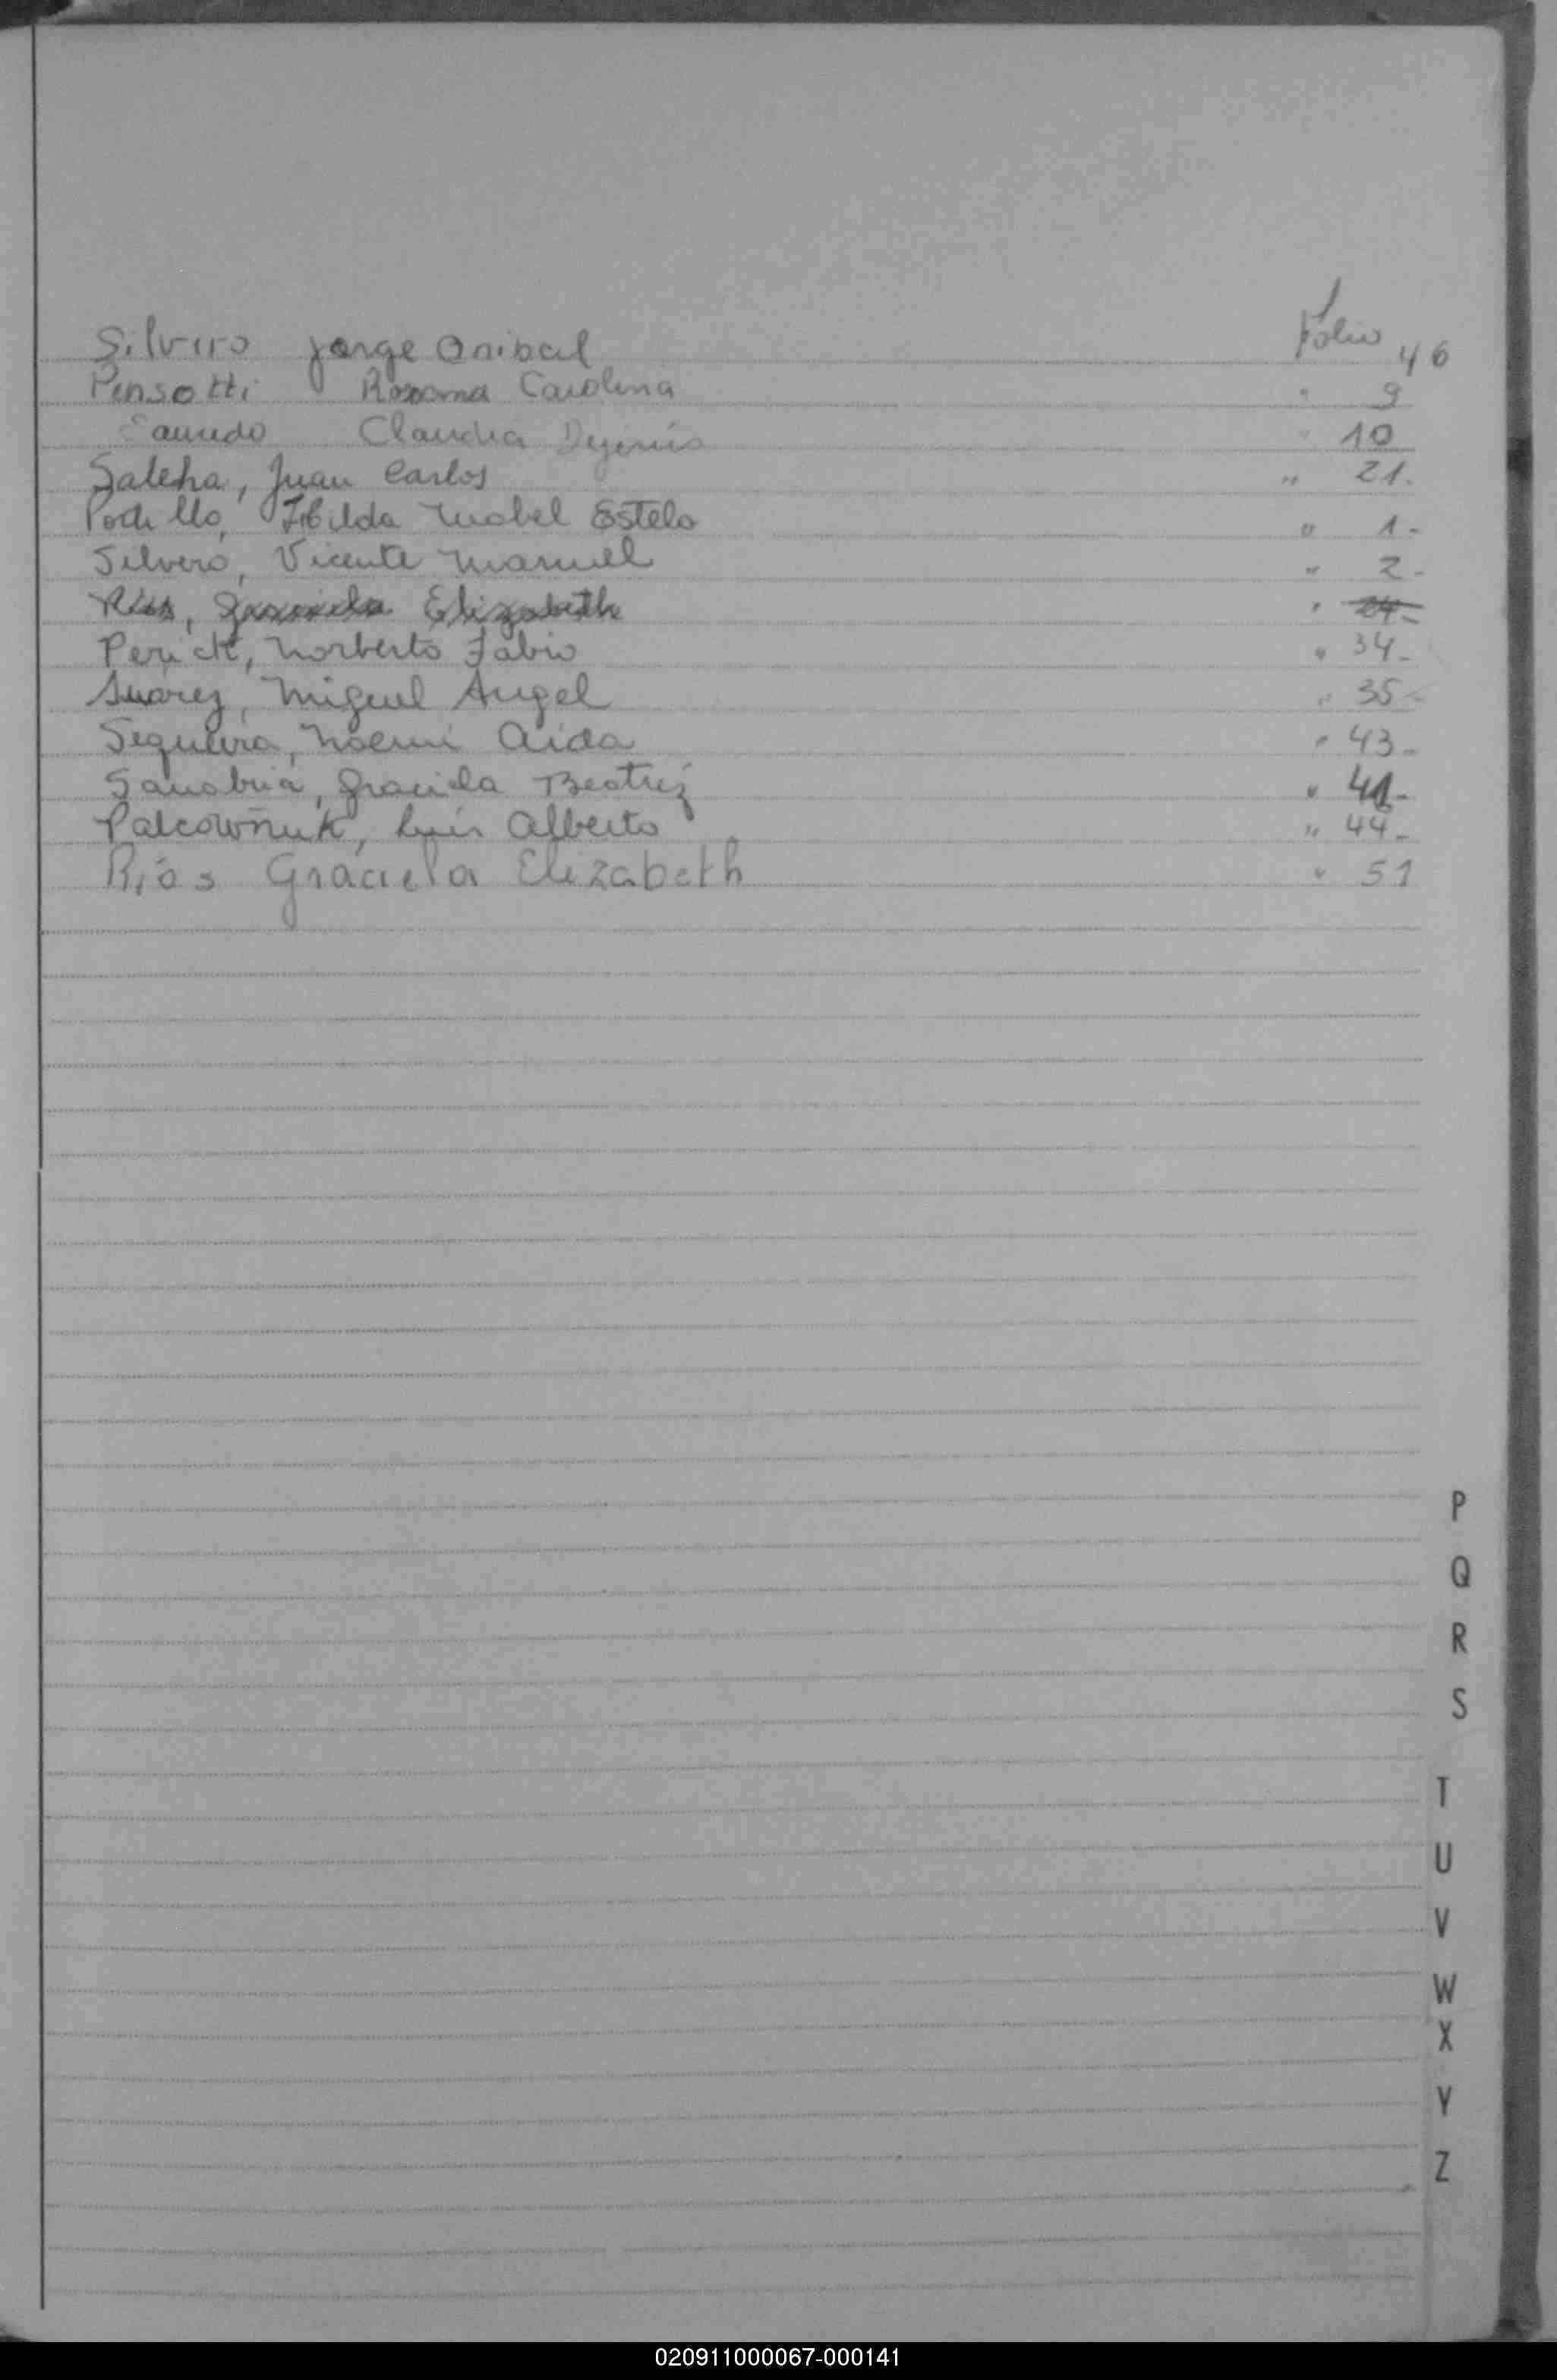 Silvero Jorge Anibal Folio 46
Pensotti Roxana Carolina " 9
Claudia " 10
Saleha, Juan Carlos " 21.
Hilda Mabel Estela " 1-
Silvero, Vicente Manuel " 2-
Ríos, Graciela Elizabeth " 24-
Norberto Fabio " 34-
Suárez, Miguel Angel " 35-
Sequeira, Noemi Aida " 43-
Sanabria, Graciela Beatriz "
Palcowñuk, Luis Alberto " 44-
Ríos Graciela Elizabeth " 51
P
Q
R
S
T
U
V
W
X
Y
Z
020911000067-000141